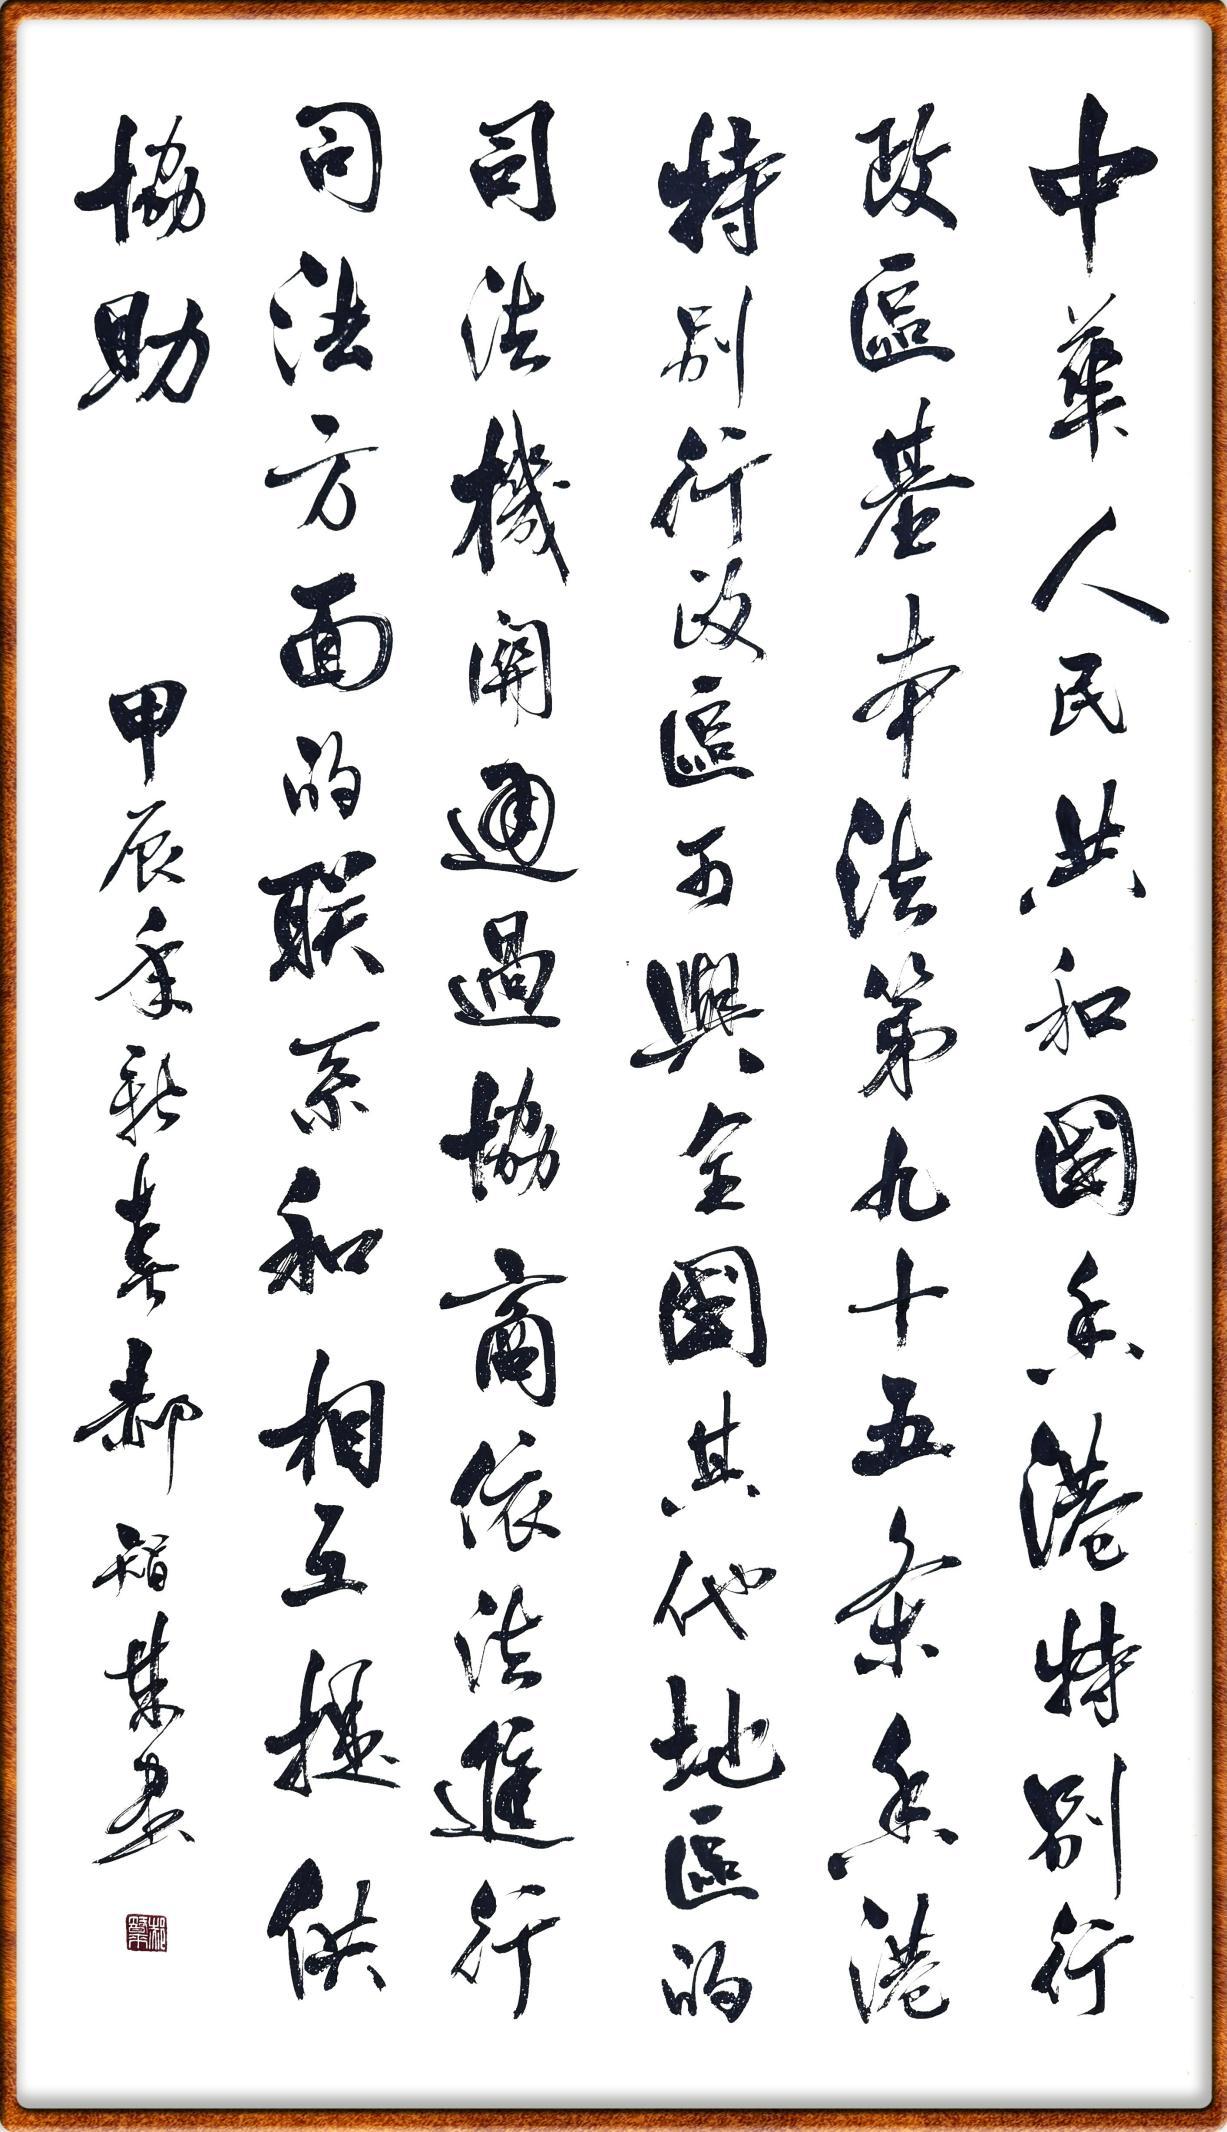 中華人民共和國香港特別行
政區基本法第九十五条香港
特别行政區可與全國其他地區的
司法機關通過協商依法進行
司法方面的联系和相互提供
協助
甲辰年新春郝智書